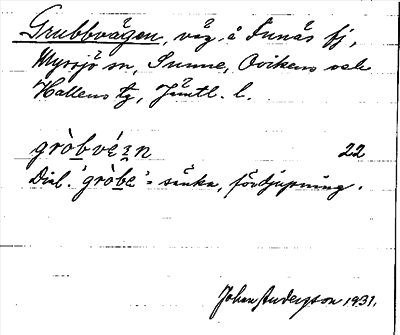 Grubbvägen, väg å Funäs fj,
Myssjö sn, Sunne, Ovikens och
Hallens tg, Jämtl. l.
gròb̲véɜ̠n 22
Dial. 'gròb̲e' = sänka, fördjupning.
Johan Anderzson 1931.